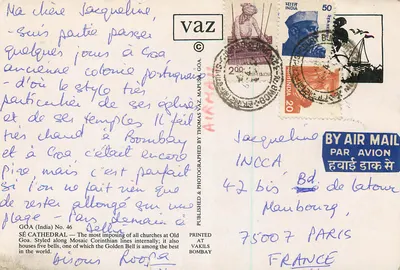 Ma chère Jacqueline,
- suis partie passer
quelques jours à Goa
ancienne colonie portugaise
- d'où le style très
particulier de ses églises
et de ses temples. Il fait
très chaud à Bombay
et à Goa c'était encore
pire mais c'est parfait
si l'on ne fait rien que
de rester allongé sur une
plage - Pars demain à
Delhi
GOA (India) No. 46
SÉ CATHEDRAL — The most imposing of all churches at Old
Goa. Styled along Mosaic Corinthian lines internally; it also
houses five bells, one of which the Golden Bell is among the best
in the world.
Bisous
vaz
©
PUBLISHED & PHOTOGRAPHED BY THOMAS VAZ, MAPUSA - GOA.
PRINTED
AT
VAKILS
BOMBAY
2.00
INDIA
भारत
INDIA
50
INDIA
20
BY AIR MAIL
PAR AVION
हवाई डाक से
Jacqueline
INCCA
42 bis Bd. de Latour
Maubourg,
75007 PARIS
FRANCE